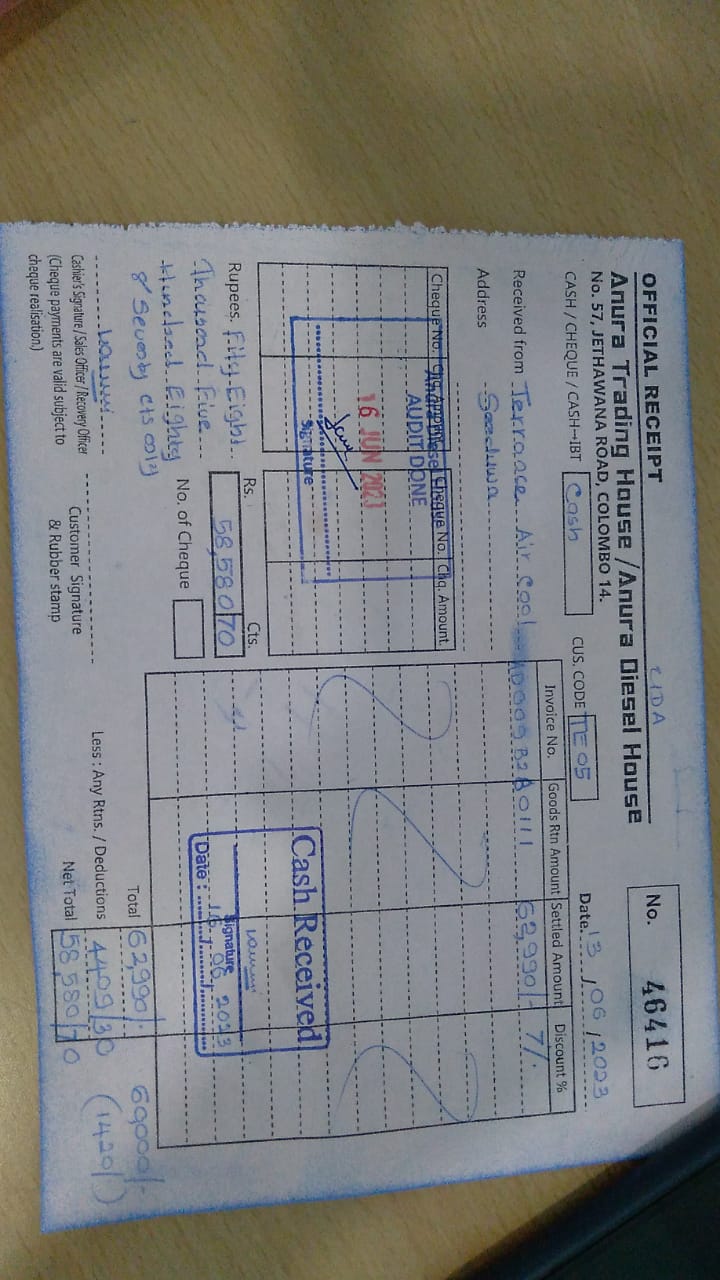 OFFICIAL RECEIPT
LIDA
No. 46416
Anura Trading House /Anura Diesel House
No. 57, JETHAWANA ROAD, COLOMBO 14.
CASH / CHEQUE / CASH-IBT Cash
CUS. CODE TE 05
Date. 13 / 06 / 2023
Received from Terrance Air Cool
Address Seeduwa
Invoice No. Goods Rtn Amount Settled Amount Discount %
62,990/- 7%
Cheque No. Chq. Amount Cheque No. Chq. Amount
AUDIT DONE
16 JUN 2023
Signature
Rupees. Fifty Eight
Thousand Five
Hundred Eighty
& Seventy cts only
Rs. Cts.
58,580 70
No. of Cheque
Cash Received
Signature
Date : 16 . 06 . 2023
Total 62,990/-
Less : Any Rtns. / Deductions 4409/30
Net Total 58,580/70
60000/-
(1420/)
Cashier's Signature / Sales Officer / Recovery Officer
(Cheque payments are valid subject to
cheque realisation.)
Customer Signature
& Rubber stamp